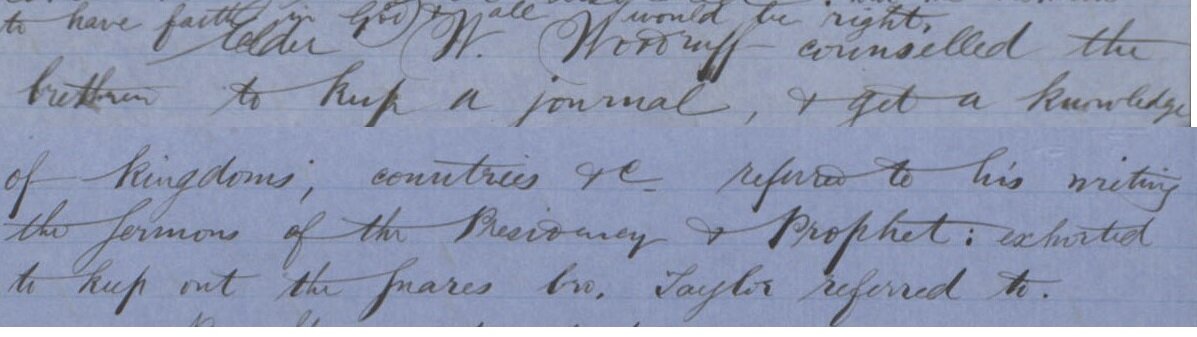 to have faith in God & all would be right.
Elder W. Woodruff counselled the
brethren to keep a journal, & get a knowledge
of kingdoms, countries &c referred to his writing
the sermons of the Presidency & Prophet: exhorted
to keep out the snares bro. Taylor referred to.